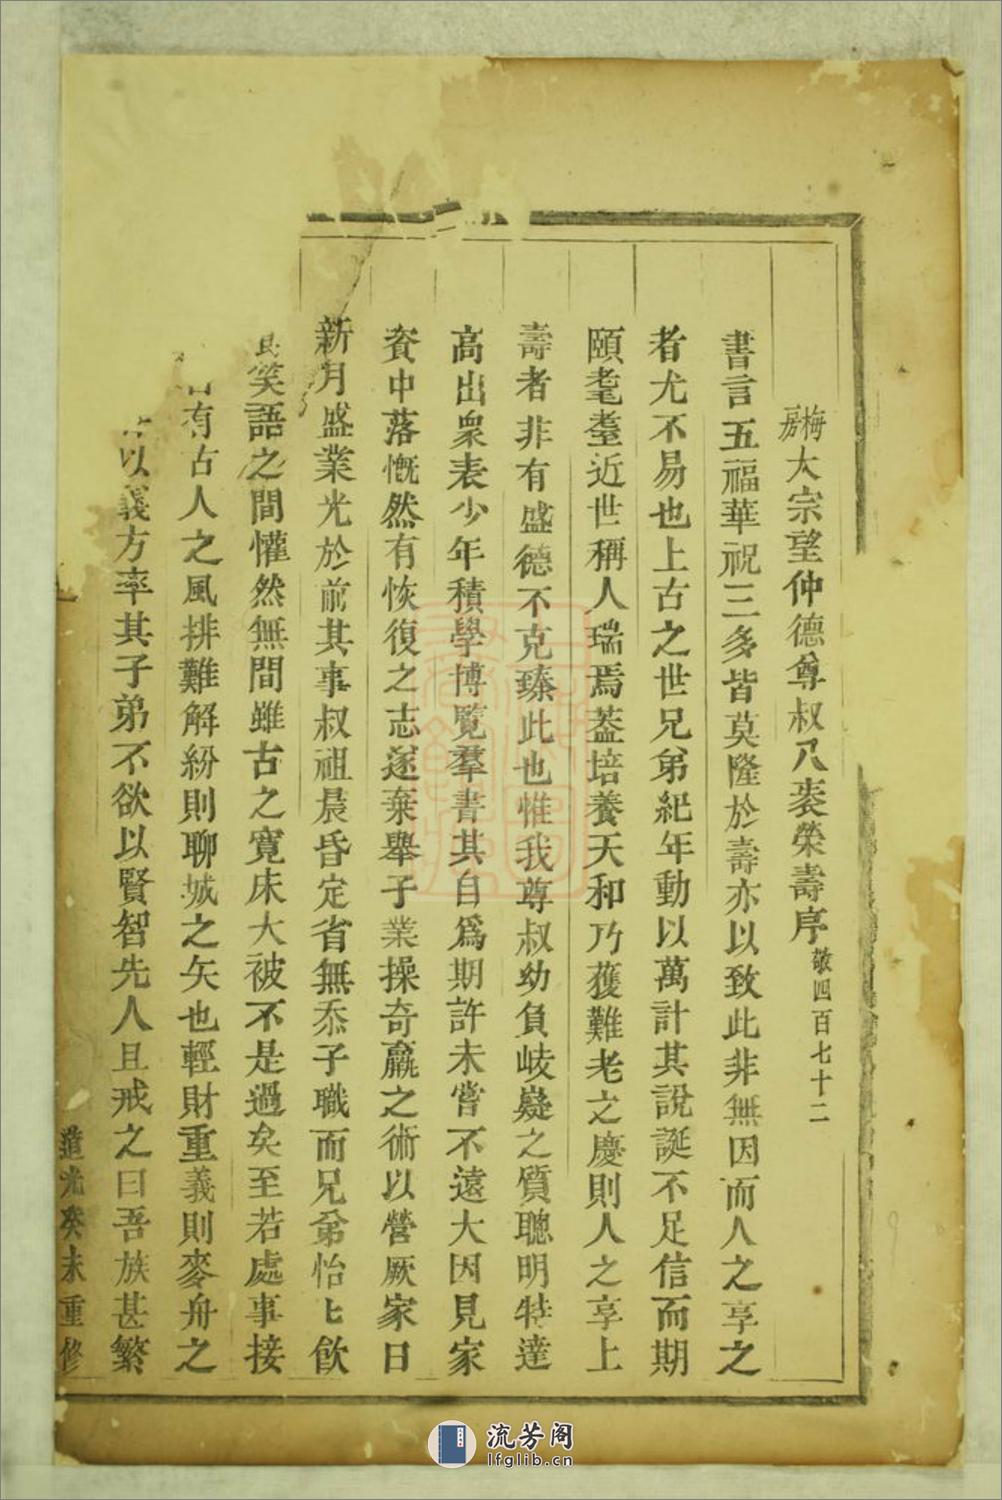 梅房大宗望仲德尊叔八袠榮壽序敬四百七十二
書言五福華祝三多皆莫隆於壽亦以致此非無因而人之享之
者尤不易也上古之世兄弟紀年動以萬計其說誕不足信而期
頤耄耋近世稱人瑞焉葢培養天和乃獲難老之慶則人之享上
壽者非有盛德不克臻此也惟我尊叔幼負岐嶷之質聰明特達
高出衆表少年積學博覽羣書其自爲期許未嘗不遠大因見家
資中落慨然有恢復之志遂棄舉子業操奇羸之術以營厥家日
新月盛業光於前其事叔祖晨昏定省無忝子職而兄弟怡匕飲
笑語之間懽然無間雖古之寬床大被不是過矣至若處事接
有古人之風排難解紛則聊城之矢也輕財重義則麥舟之
以義方率其子弟不欲以賢智先人且戒之曰吾族甚繁
道光癸未重修
流芳阁
lfglib.cn